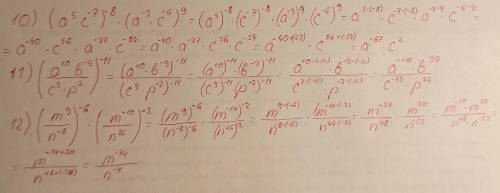 10) (a⁵c⁻⁷)⁻⁸·(a⁻³·c⁻⁶)⁹=(a⁵)⁻⁸·(c⁻⁷)⁻⁸·(a⁻³)⁹·(c⁻⁶)⁹=a⁵·⁽⁻⁸⁾·c⁻⁷·⁽⁻⁸⁾·a⁻³·⁹·c⁻⁶·⁹=
=a⁻⁴⁰·c⁵⁶·a⁻²⁷·c⁻⁵⁴=a⁻⁴⁰·a⁻²⁷·c⁵⁶·c⁻⁵⁴=a⁻⁴⁰⁺⁽⁻²⁷⁾·c⁵⁶⁺⁽⁻⁵⁴⁾=a⁻⁶⁷·c²
11) (a¹⁰·b⁻⁹/c³·p²)⁻¹¹=(a¹⁰·b⁻⁹)⁻¹¹/(c³·p²)⁻¹¹=(a¹⁰)⁻¹¹·(b⁻⁹)⁻¹¹/(c³)⁻¹¹(p²)⁻¹¹=a¹⁰·⁽⁻¹¹⁾·b⁻⁹·⁽⁻¹¹⁾/c³·⁽⁻¹¹⁾·p²·⁽⁻¹¹⁾=a⁻¹¹⁰·b⁹⁹/c⁻³³·p²²
12) (m⁹/n⁻⁸)⁻⁶·(m⁻¹⁰/n²⁶)⁻²=(m⁹)⁻⁶/(n⁻⁸)⁻⁶·(m⁻¹⁰)⁻²/(n²⁶)⁻²=m⁹·⁽⁻⁶⁾/n⁻⁸·⁽⁻⁶⁾·m⁻¹⁰·⁽⁻²⁾/n²⁶·⁽⁻²⁾=m⁻⁵⁴/n⁴⁸·m²⁰/n⁻⁵²=m⁻⁵⁴·m²⁰/n⁴⁸·n⁻⁵²=
=m⁻⁵⁴⁺²⁰/n⁴⁸⁺⁽⁻⁵²⁾=m⁻³⁴/n⁻⁴